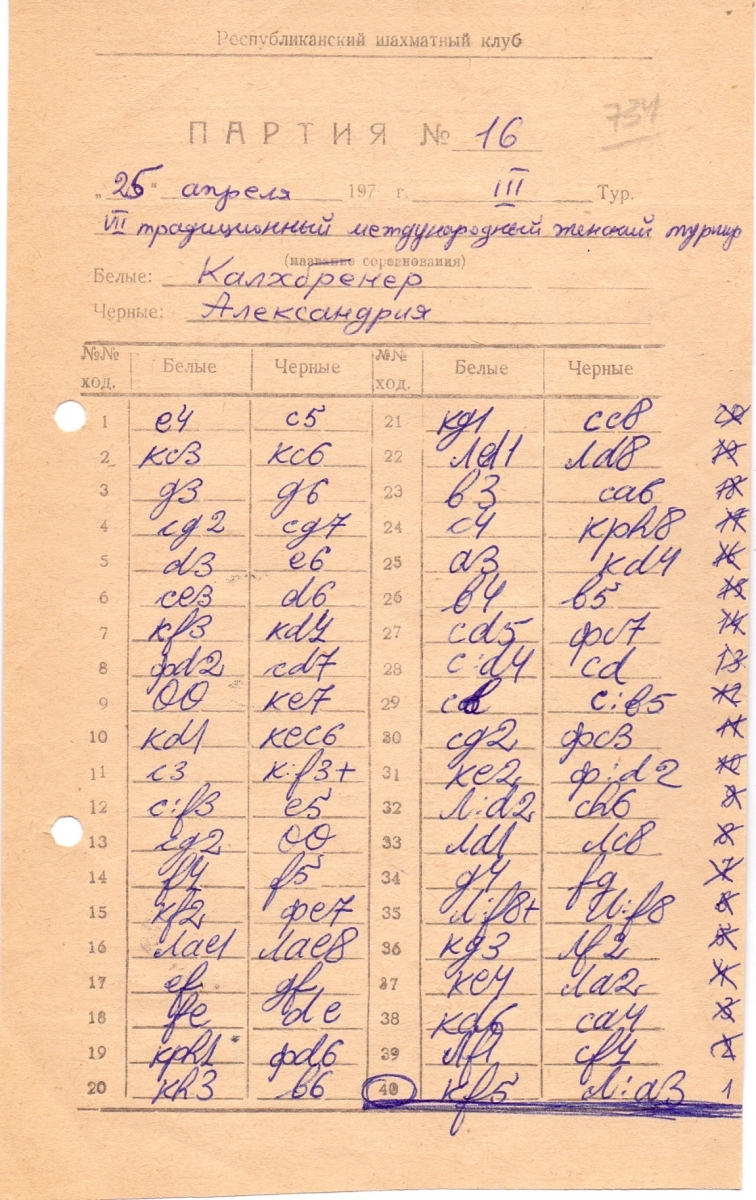 Республиканский шахматный клуб
734
ПАРТИЯ № 16
„25" апреля 197 г. III Тур.
VII традиционный международный женский турнир
(название соревнования)
Белые: Калхбренер
Черные: Александрия
№№ ход. Белые Черные №№ ход. Белые Черные
1 e4 c5 21 кg1 cc8 20
2 кc3 кc6 22 лed1 лd8 19
3 g3 g6 23 в3 ca6 18
4 cg2 cg7 24 c4 крh8 17
5 d3 e6 25 a3 кd4 16
6 ce3 d6 26 в4 в5 15
7 кf3 кd4 27 cd5 фc7 14
8 фd2 cd7 28 c:d4 cd 13
9 00 кe7 29 cв c:в5 12
10 кd1 кec6 30 cg2 фc3 11
11 c3 к:f3+ 31 кe2 ф:d2 10
12 c:f3 e5 32 л:d2 ch6 9
13 cg2 00 33 лd1 лc8 8
14 f4 f5 34 g4 fg 7
15 кf2 фe7 35 л:f8+ л:f8 6
16 лae1 лae8 36 кg3 лf2 5
17 ef gf 37 кe4 лa2 4
18 fe de 38 ca4 3
19 крh1 фd6 39 лf1 cf4 2
20 кh3 в6 40 кf5 л:a3 1